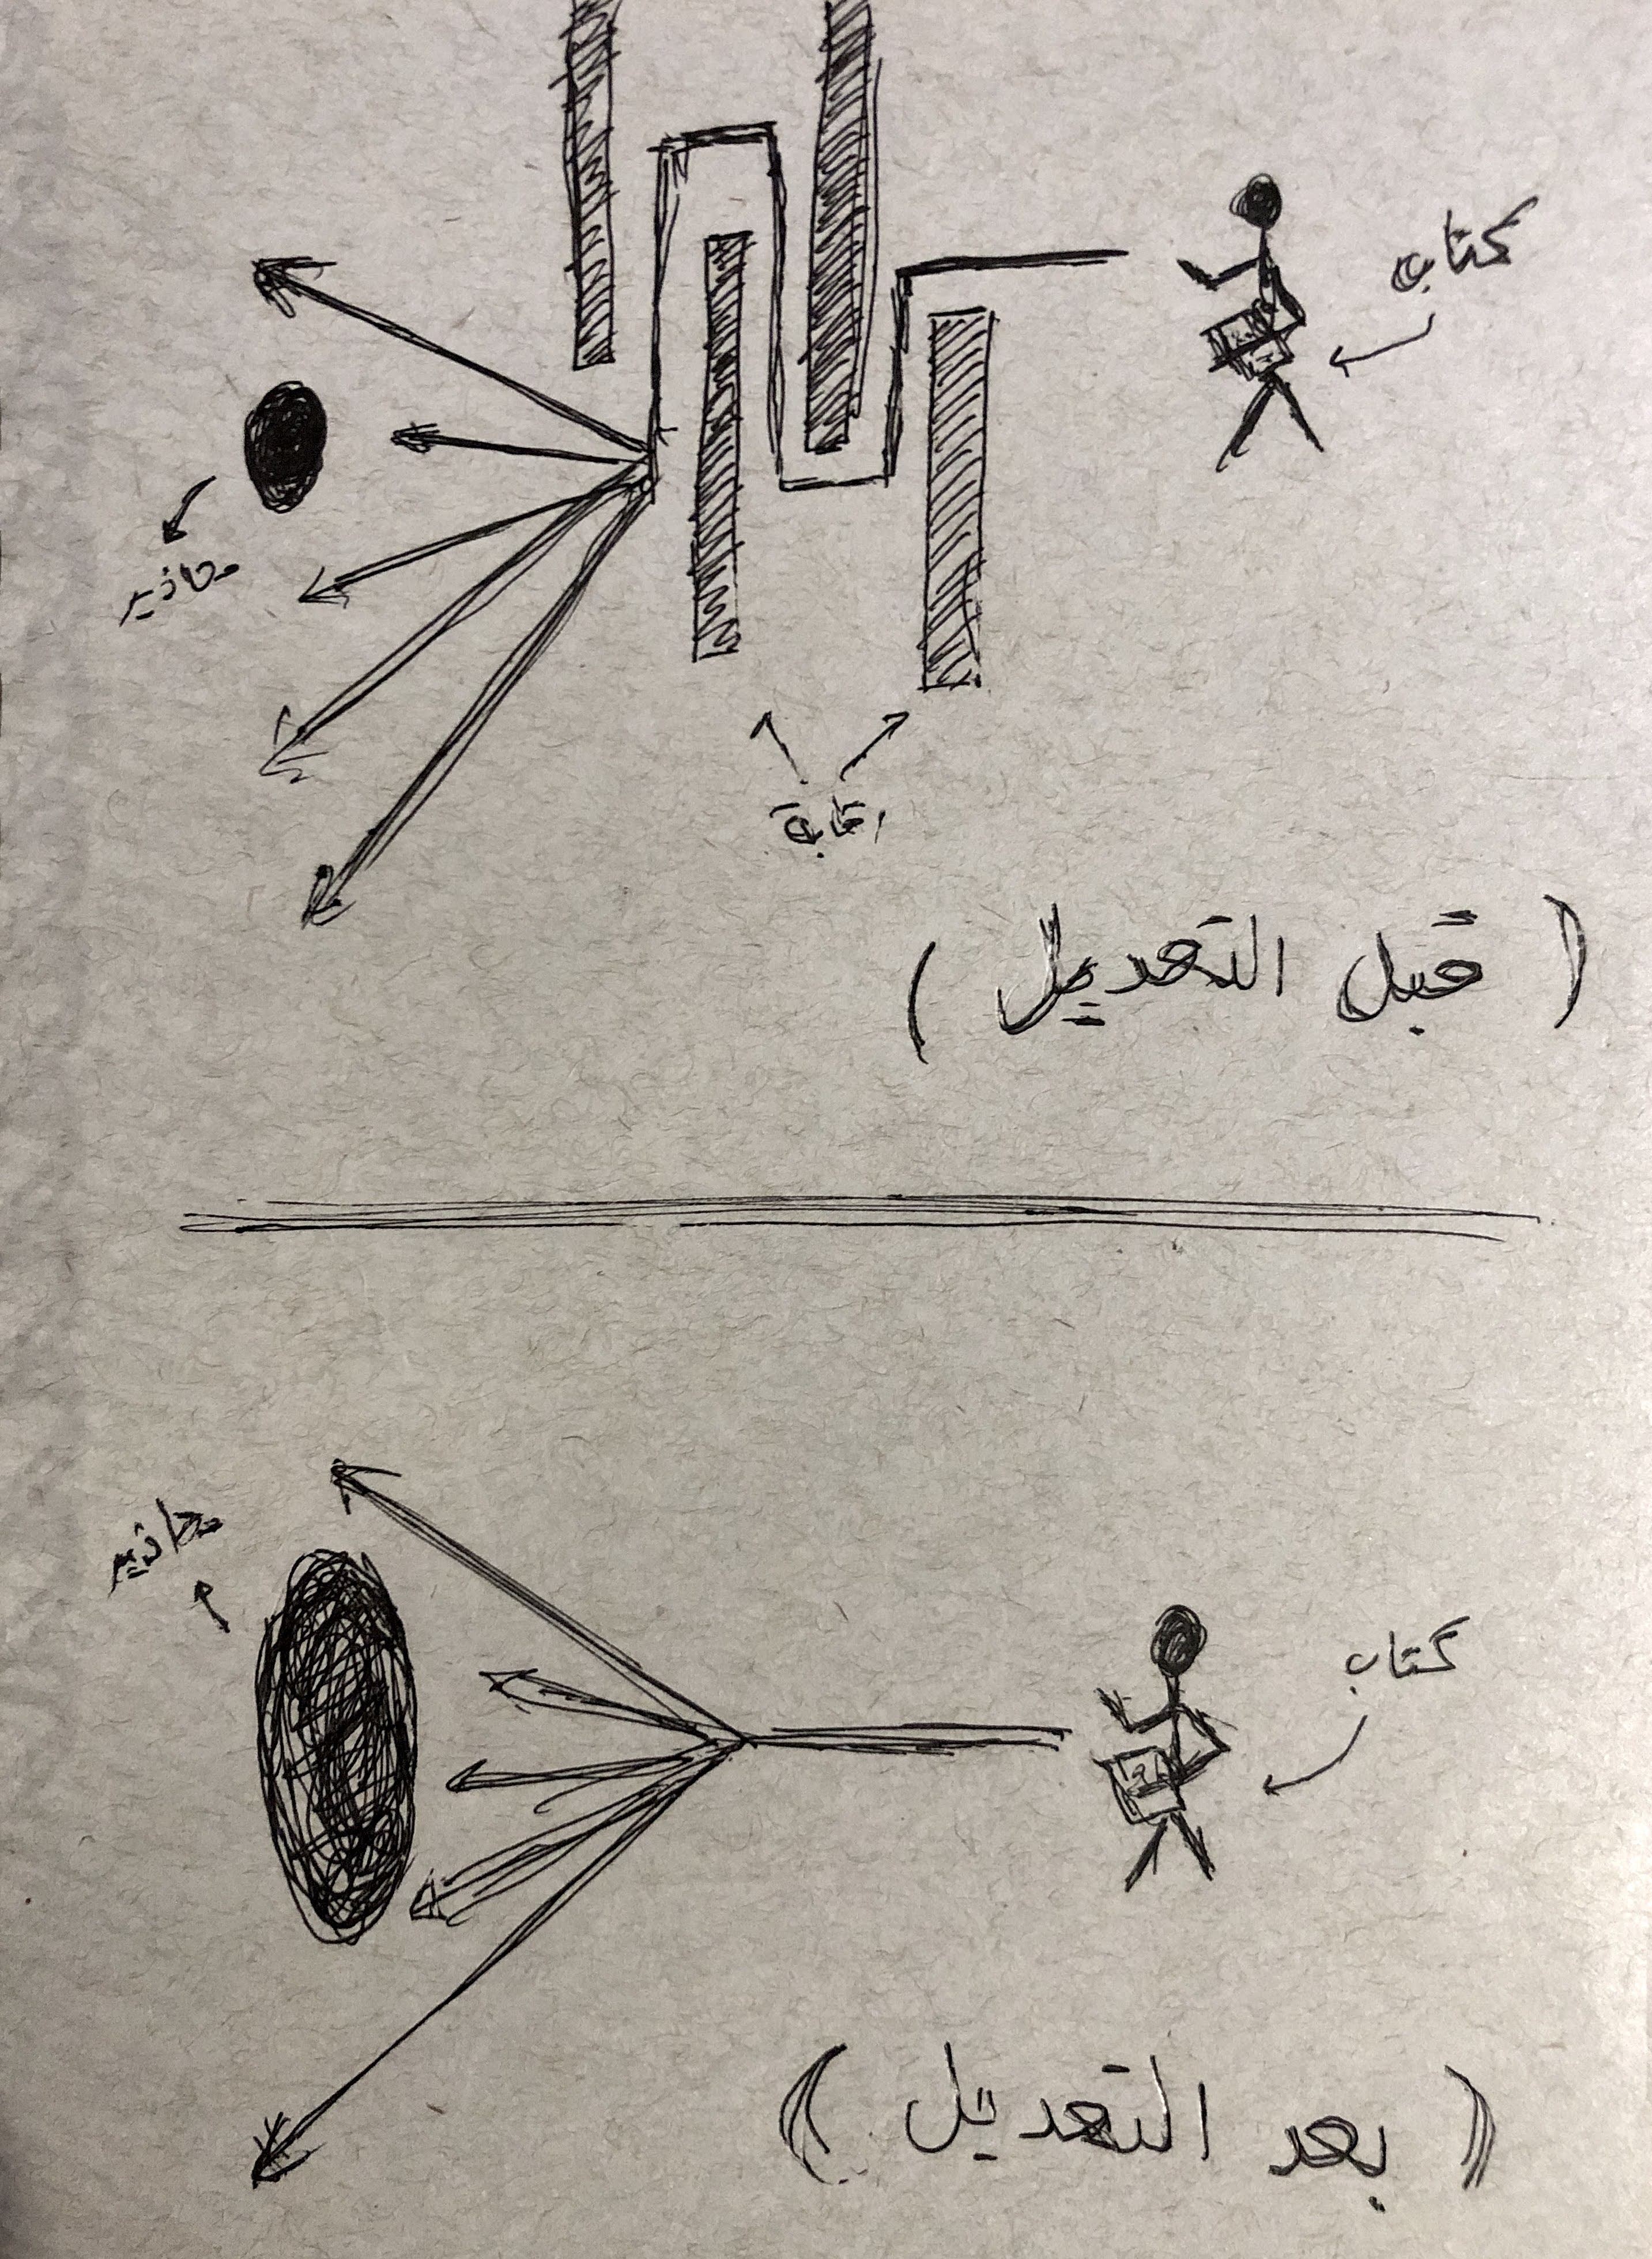 كتاب
محاذير
رقابة
( قبل التعديل )
محاذير
كتاب
( بعد التعديل )